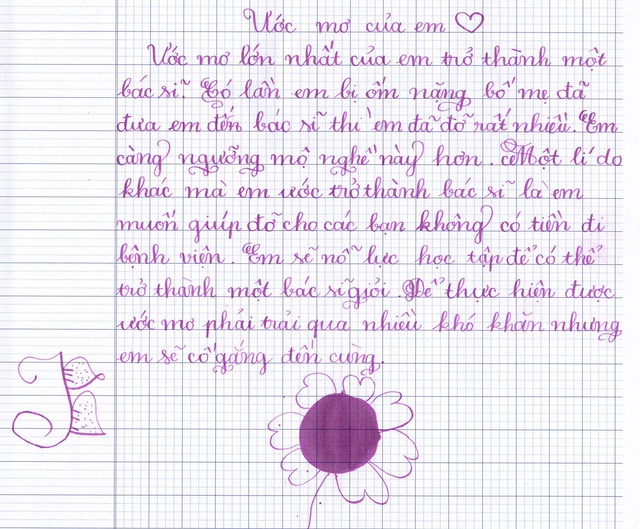 Ước mơ của em
Ước mơ lớn nhất của em trở thành một
bác sĩ. Có lần em bị ốm nặng bố mẹ đã
đưa em đến bác sĩ thì em đã đỡ rất nhiều. Em
càng ngưỡng mộ nghề này hơn. Một lí do
khác mà em ước trở thành bác sĩ là em
muốn giúp đỡ cho các bạn không có tiền đi
bệnh viện. Em sẽ nỗ lực học tập để có thể
trở thành một bác sĩ giỏi. Để thực hiện được
ước mơ phải trải qua nhiều khó khăn nhưng
em sẽ cố gắng đến cùng.